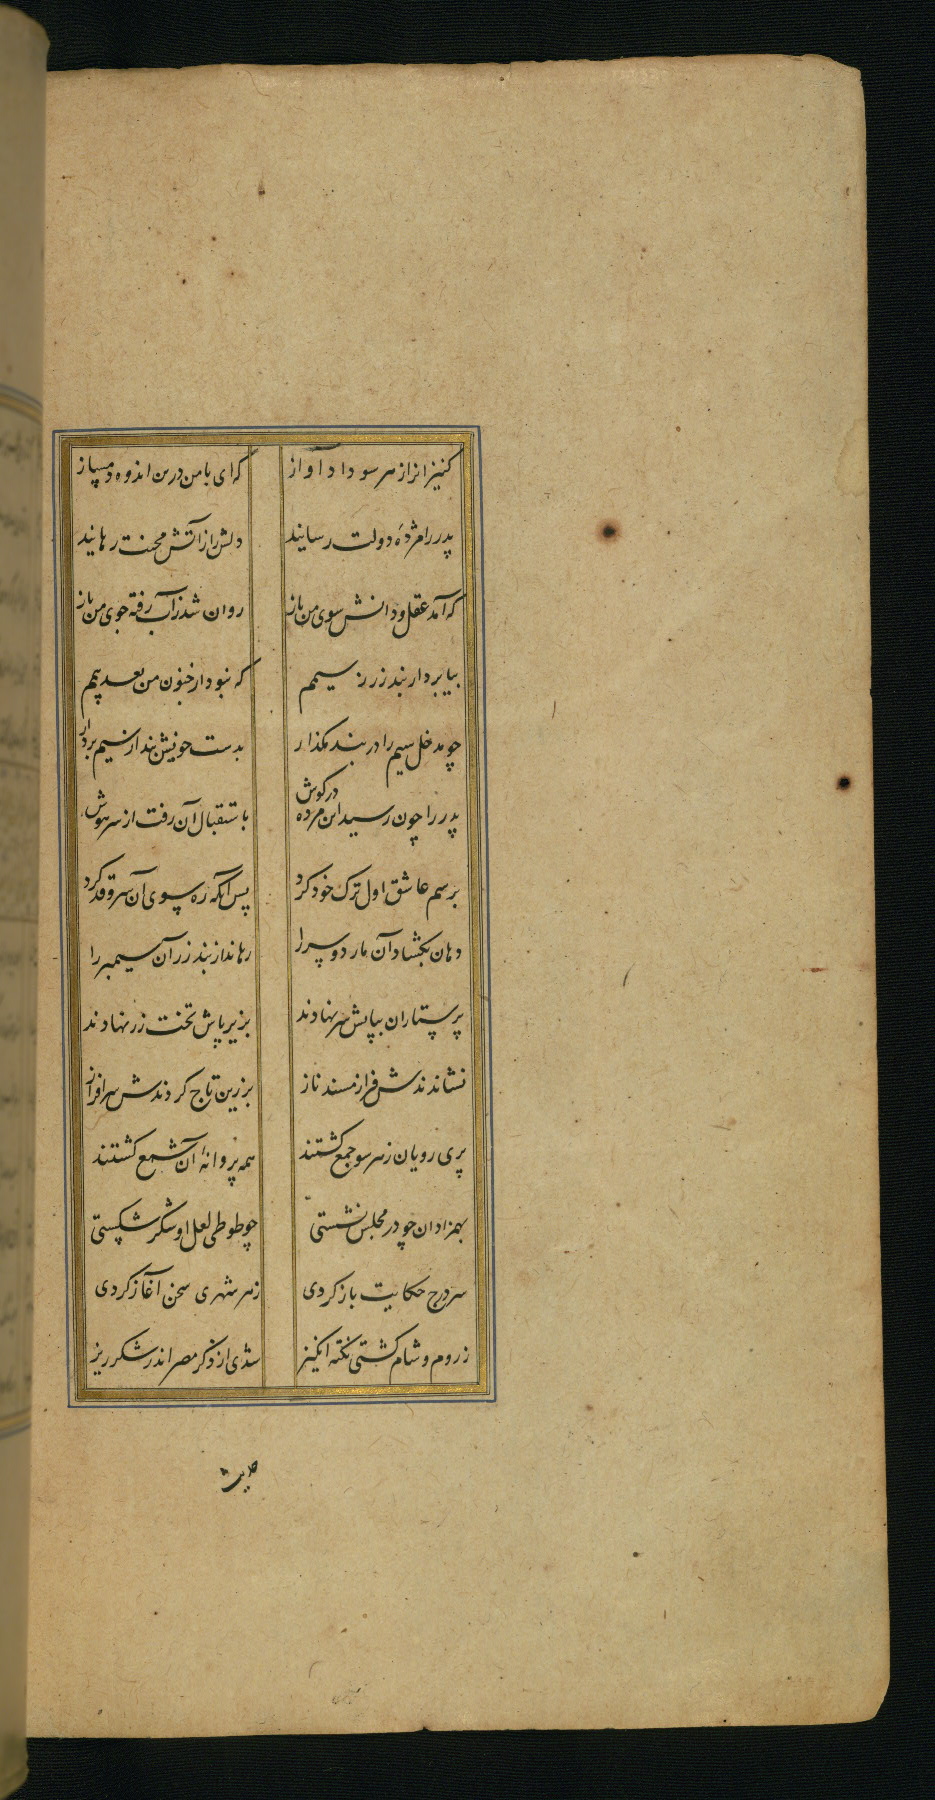 کنیزانرا ز هر سو داد آواز که ای با من درین اندوه دمساز
پدر را مژدهٔ دولت رسانید دلش را ز آتش محنت رهانید
که آمد عقل و دانش سوی من باز روان شد ز آب رفته جوی من باز
بیا بردار بند زر ز سیمم که نبود از جنون من بعد بیمم
چو مدخل سیم را در بند مگذار بدست خویش بند از سیم بردار
پدر را چون رسید این مژده در کوش باستقبال آن رفت از سر هوش
برسم عاشق اول ترک خود کرد پس آنکه ره سوی آن سرو قد کرد
دهان بکشاد آن مار دو سر را رهاند از بند زر آن سیمبر را
پرستاران بپایش سر نهادند بزیر پاش تخت زر نهادند
نشاندندش فراز مسند ناز بزرین تاج کردندش سرافراز
پری رویان ز هر سو جمع کشتند همه پروانهٔ آن شمع کشتند
بهمزادان چو در مجلس نشستی چو طوطی لعل او شکر شکستی
سر درج حکایت باز کردی ز هر شهری سخن آغاز کردی
ز روم و شام کشتی نکته انکیز شدی از ذکر مصر اندر شکر ریز